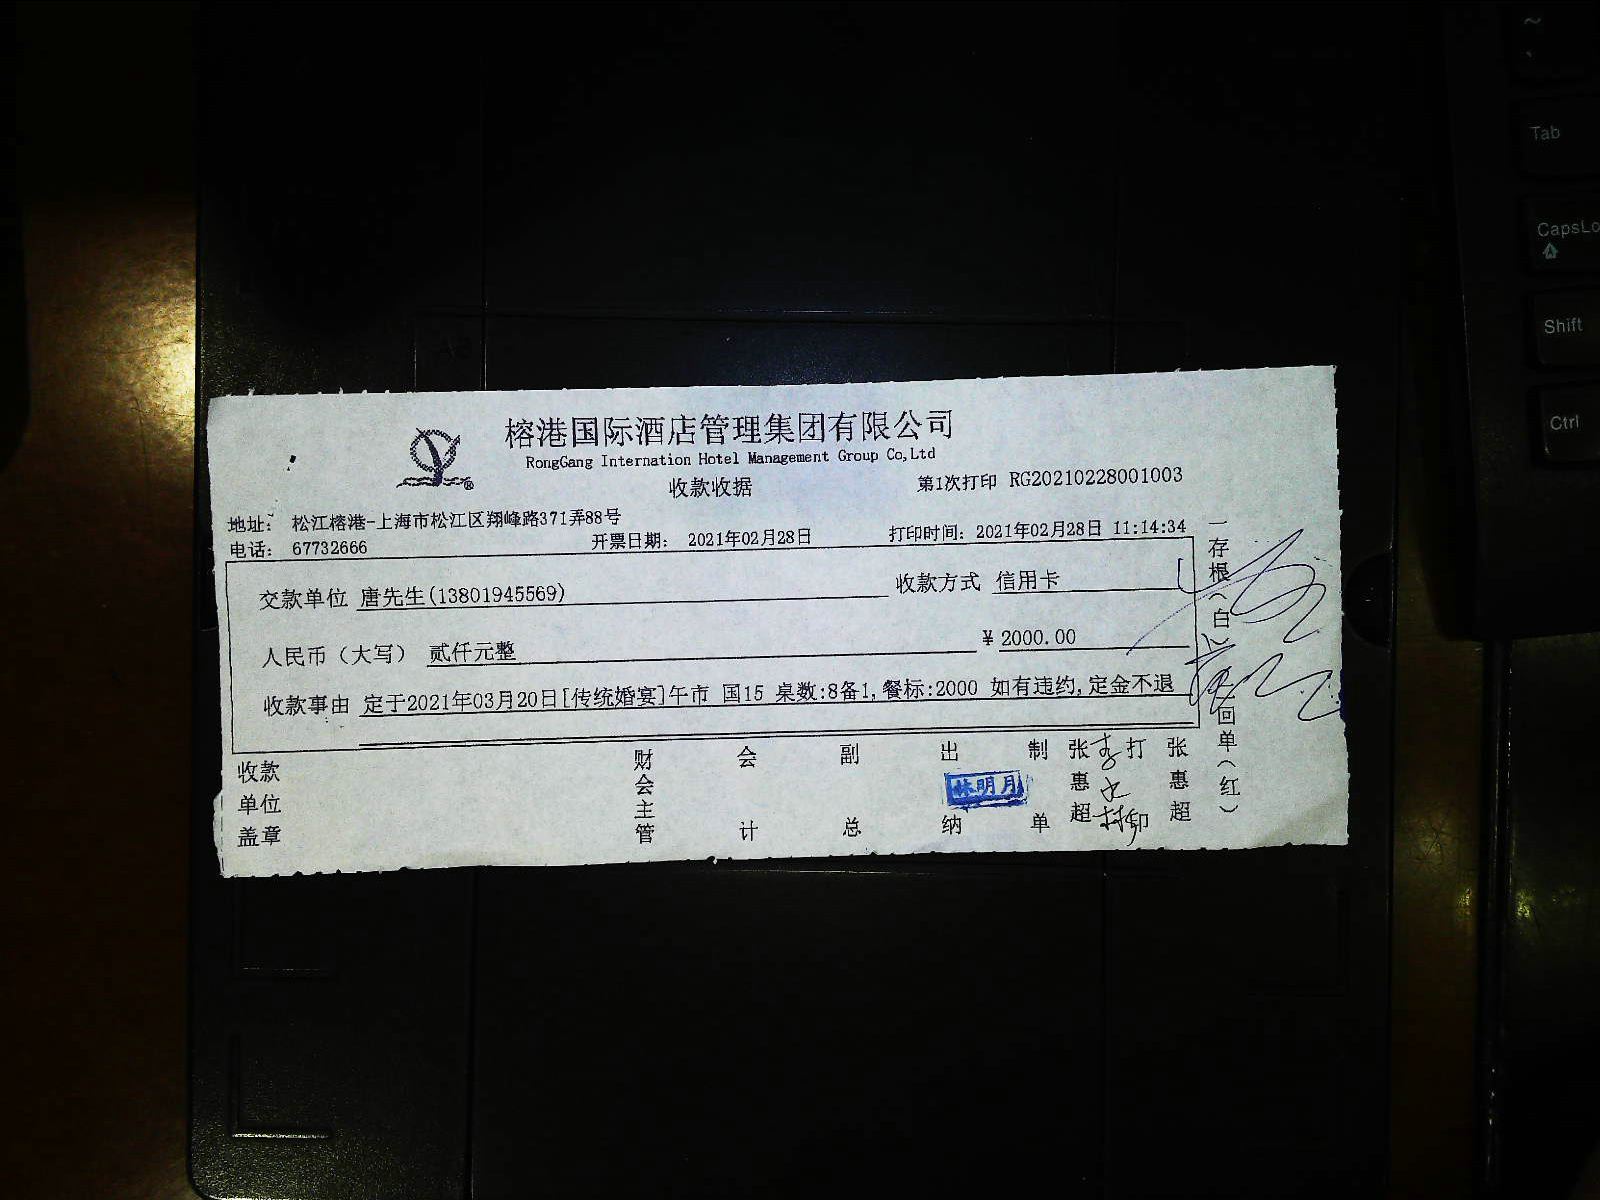 榕港国际酒店管理集团有限公司
RongGang Internation Hotel Management Group Co,Ltd
收款收据
第1次打印 RG20210228001003
地址: 松江榕港-上海市松江区翔峰路371弄88号
电话: 67732666
开票日期: 2021年02月28日
打印时间: 2021年02月28日 11:14:34
交款单位 唐先生(13801945569)
收款方式 信用卡
人民币（大写） 贰仟元整
¥ 2000.00
收款事由 定于2021年03月20日[传统婚宴]午市 国15 桌数:8备1,餐标:2000 如有违约,定金不退
收款单位盖章
财会主管
会计
副总
出纳
林明月
制单
张惠超
打印
张惠超
一存根(白)
二回单(红)
~
Tab
CapsLo
Shift
Ctrl